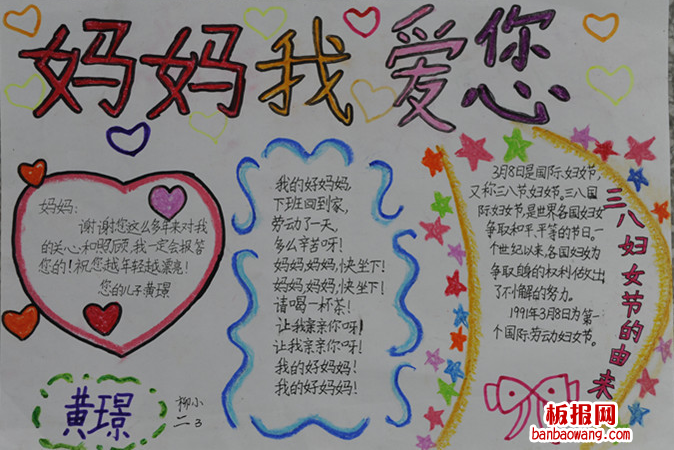 妈妈我爱您
妈妈:
谢谢您这么多年来对我
的关心和照顾,我一定会报答
您的!祝您越年轻越漂亮!
您的儿子黄璟
黄璟
柳小
二3
我的好妈妈,
下班回到家,
劳动了一天,
多么辛苦呀!
妈妈,妈妈,快坐下!
妈妈,妈妈,快坐下!
请喝一杯茶!
让我亲亲你呀!
让我亲亲你呀!
我的好妈妈!
我的好妈妈!
三八妇女节的由来
3月8日是国际妇女节,
又称三八节,妇女节。三八国
际妇女节,是世界各国妇女
争取和平、平等的节日。一
个世纪以来,各国妇女为
争取自身的权利作出
了不懈的努力。
1991年3月8日为第一
个国际劳动妇女节。
板报网
banbaowang.com